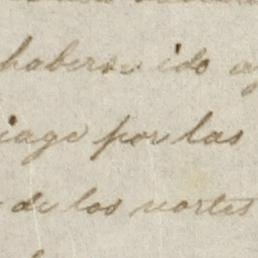 haberse ido
iage por las
de los nortes